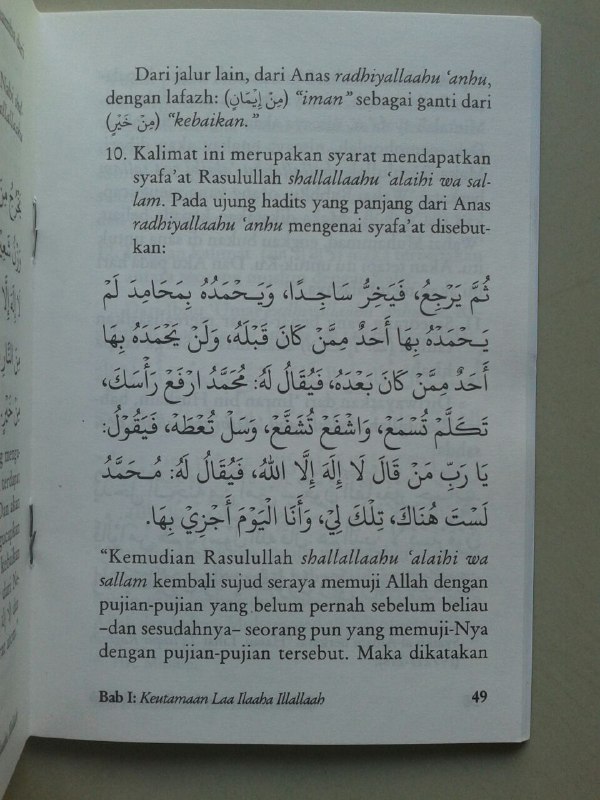 Dari jalur lain, dari Anas radhiyallaahu ‘anhu,
dengan lafazh: (مِنْ إِيْمَانٍ) “iman” sebagai ganti dari
(مِنْ خَيْرٍ) “kebaikan.”
10. Kalimat ini merupakan syarat mendapatkan
syafa’at Rasulullah shallallaahu ‘alaihi wa sal-
lam. Pada ujung hadits yang panjang dari Anas
radhiyallaahu ‘anhu mengenai syafa’at disebut-
kan:
ثُمَّ يَرْجِعُ، فَيَخِرُّ سَاجِدًا، وَيَحْمَدُهُ بِمَحَامِدَ لَمْ
يَحْمَدْهُ بِهَا أَحَدٌ مِمَّنْ كَانَ قَبْلَهُ، وَلَنْ يَحْمَدَهُ بِهَا
أَحَدٌ مِمَّنْ كَانَ بَعْدَهُ، فَيُقَالُ لَهُ: مُحَمَّدُ ارْفَعْ رَأْسَكَ،
تَكَلَّمْ تُسْمَعْ، وَاشْفَعْ تُشَفَّعْ، وَسَلْ تُعْطَهْ، فَيَقُوْلُ:
يَا رَبِّ مَنْ قَالَ لَا إِلَهَ إِلَّا اللهُ، فَيُقَالُ لَهُ: مُحَمَّدُ
لَسْتَ هُنَاكَ، تِلْكَ لِيْ، وَأَنَا الْيَوْمَ أَجْزِيْ بِهَا.
“Kemudian Rasulullah shallallaahu ‘alaihi wa
sallam kembali sujud seraya memuji Allah dengan
pujian-pujian yang belum pernah sebelum beliau
–dan sesudahnya– seorang pun yang memuji-Nya
dengan pujian-pujian tersebut. Maka dikatakan
Bab I: Keutamaan Laa Ilaaha Illallaah 49